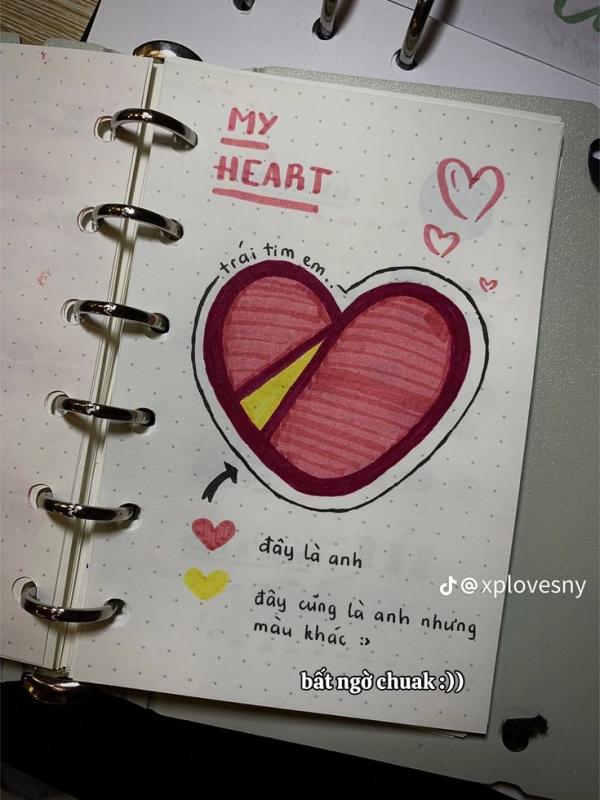 MY
HEART
trái tim em...
đây là anh
đây cũng là anh nhưng
màu khác :>
@xplovesny
bất ngờ chuak :))